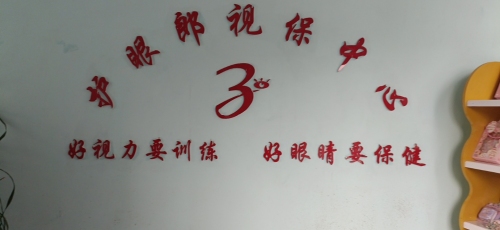 护眼郎视保中心
3
好视力要训练 好眼睛要保健